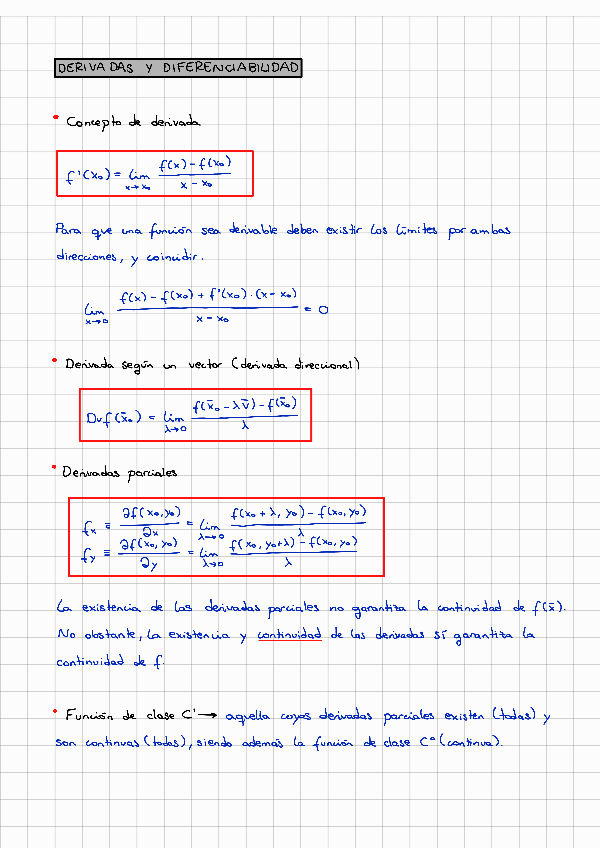 DERIVADAS Y DIFERENCIABILIDAD
• Concepto de derivada
f'(x₀) = lim x→x₀ (f(x) - f(x₀)) / (x - x₀)
Para que una función sea derivable deben existir los límites por ambas
direcciones, y coincidir.
lim x→0 (f(x) - f(x₀) + f'(x₀) · (x - x₀)) / (x - x₀) = 0
• Derivada según un vector (derivada direccional)
Dvf(x̄₀) = lim λ→0 (f(x̄₀ - λv̄) - f(x̄₀)) / λ
• Derivadas parciales
fx ≡ ∂f(x₀,y₀)/∂x = lim λ→0 (f(x₀ + λ, y₀) - f(x₀, y₀)) / λ
fy ≡ ∂f(x₀, y₀)/∂y = lim λ→0 (f(x₀, y₀+λ) - f(x₀, y₀)) / λ
La existencia de las derivadas parciales no garantiza la continuidad de f(x̄).
No obstante, la existencia y continuidad de las derivadas sí garantiza la
continuidad de f.
• Función de clase C¹ → aquella cuyas derivadas parciales existen (todas) y
son continuas (todas), siendo además la función de clase C⁰ (continua).